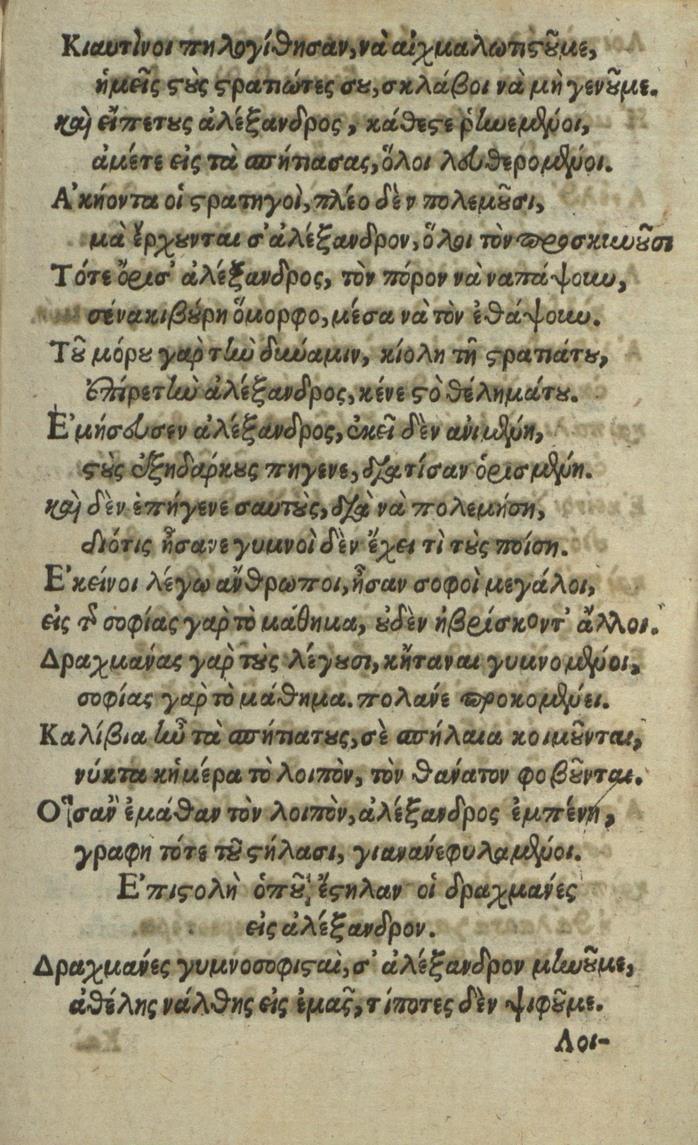 Κιαυτίνοι πηλογίθησαν, νὰ αἰχμαλωτιςοῦμε,
ἡμεῖς ςοὺς ςρατιώτες σου, σκλάβοι νὰ μὴ γενοῦμε.
καὶ εἶπετους ἀλέξανδρος, κάθεςε ῥηνεμένοι,
ἀμέτε εἰς τὰ σπήτιασας, ὅλοι λευθερομένοι.
Ἀκήοντα οἱ ςρατηγοὶ, πλέο δὲν πολεμοῦσι,
μὰ ἔρχουνται σ' ἀλέξανδρον, ὅλοι τὸν προσκυνοῦσι
Τότε ὅρισ' ἀλέξανδρος, τὸν πόρον νὰ ναπάψουν,
σένα κιβούρη ὄμορφο, μέσα νὰ τὸν ἐθάψουν.
Τοῦ μόρου γὰρ τὴν δύναμιν, κίολη τῆ ςρατιάτου,
ἐπίρετὴν ἀλέξανδρος, κένε ςὸ θέλημάτου.
Ἐμήσευσεν ἀλέξανδρος, ἐκεῖ δὲν ἀνιμένη,
ςοὺς ὀξηδάρκους πηγενε, διατίσαν ὁρισμένη.
καὶ δὲν ἐπήγενε σαυτοὺς, διὰ νὰ πολεμήση,
διότις ἦσανε γυμνοὶ δὲν ἔχει τὶ τοὺς ποίση.
Ἐκείνοι λέγω ἄνθρωποι, ἦσαν σοφοὶ μεγάλοι,
εἰς τῆς σοφίας γὰρ τὸ μάθημα, οὐδὲν ἡβρίσκοντ' ἄλλοι.
Δραχμανάς γὰρ τοὺς λέγουσι, κῆταναι γυμνομένοι,
σοφίας γὰρ τὸ μάθημα. πολανε προκομένοι.
Καλίβια ἦν τὰ σπήτιατους, σὲ σπήλαια κοιμοῦνται,
νύκτα κἡμέρα τὸ λοιπὸν, τὸν θάνατον φοβοῦνται.
Ὅσαν ἐμάθαν τὸν λοιπὸν, ἀλέξανδρος ἐμπένη,
γραφη τότε τοῦ ςήλασι, γιανανεφυλαμένοι.
Ἐπιςολὴ ὁποῦ ἔςηλαν οἱ δραχμανές
εἰς ἀλέξανδρον.
Δραχμανές γυμνοσοφιςαὶ, σ' ἀλέξανδρον μηνοῦμε,
ἀθέλης νάλθης εἰς ἐμᾶς, τίποτες δὲν ψιφοῦμε.
Λοι-